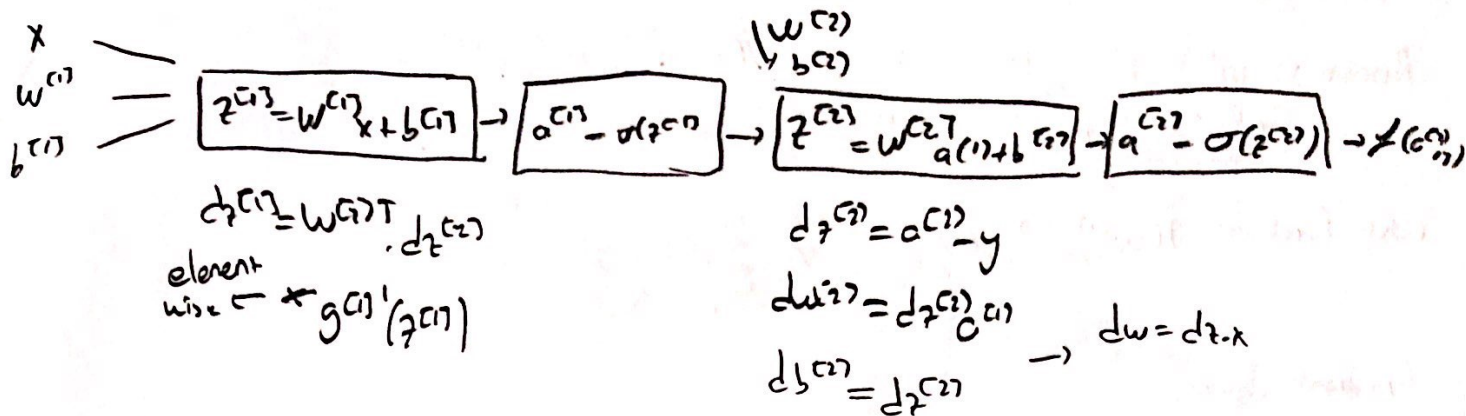 x
w^[1]
b^[1]
z^[1] = w^[1]x + b^[1] →
a^[1] = σ(z^[1]) →
w^[2]
b^[2]
z^[2] = w^[2]a^[1] + b^[2] →
a^[2] = σ(z^[2]) →
dz^[1] = w^[2]T . dz^[2]
element
wise ← * g^[1]'(z^[1])
dz^[2] = a^[2] - y
dw^[2] = dz^[2] a^[1]
db^[2] = dz^[2]
→ dw = dz.x